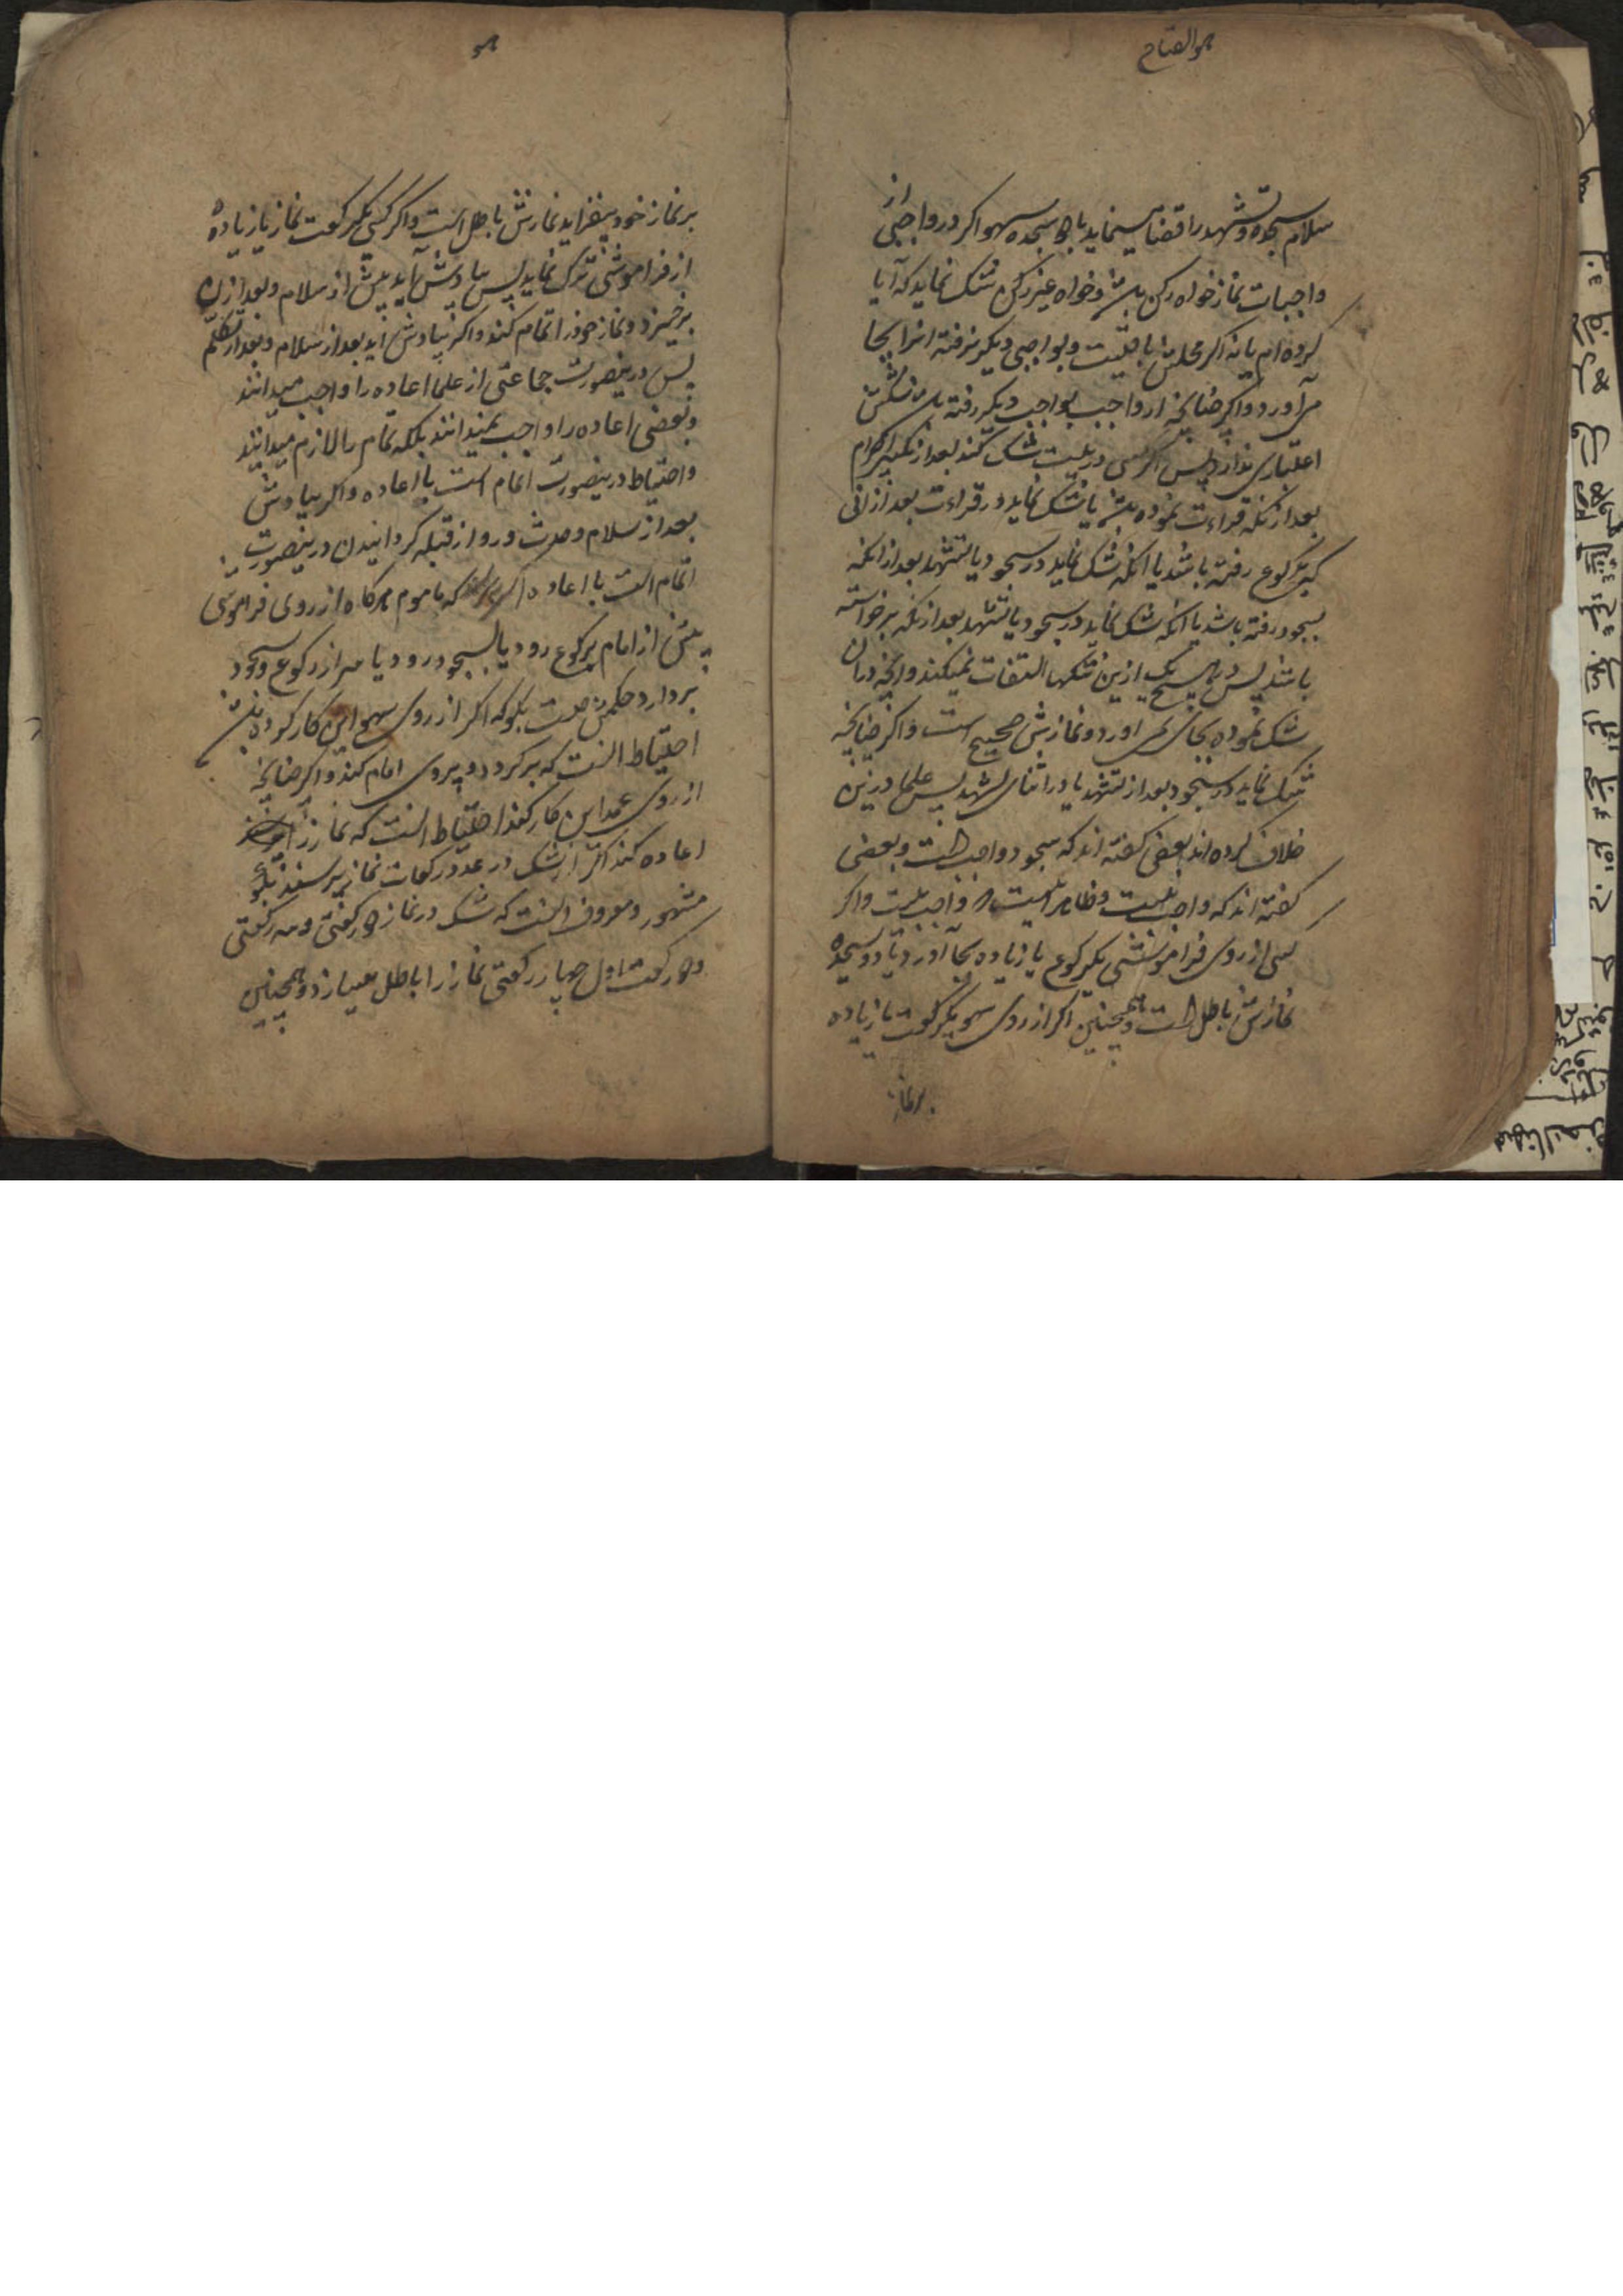 هو الفتاح
سلام سجده و تشهد را قضا مینماید با دو سجده سهو اکر در واجبی از
واجبات نماز خواه رکن باشد و خواه غیر رکن شک نماید که آیا
کرده ام یا نه اکر محلش باقیست و بواجبی دیکر نرفته انرا بجا
می آورد و اکر چنانچه از واجب بواجب دیکر رفته باشد شکش
اعتباری ندارد پس اکر کسی در نیت شک کند بعد از تکبیر احرام
بعد از انکه قراءت نموده باشد یا شک نماید در قراءت بعد از انی
که برکوع رفته باشد یا انکه شک نماید در سجود یا تشهد بعد از انکه
بسجود رفته باشد یا انکه شک نماید در سجود یا تشهد بعد از انکه برخواسته
باشد پس در هیچ یک ازین شکها التفات نمیکند و انچه در ان
شک نموده بجای نمی اورد و نمازش صحیح است و اکر چنانچه
شک نماید در سجود بعد از تشهد یا در اثنای تشهد پس علما درین
خلاف کرده اند بعضی کفته اند که سجود واجب است و بعضی
کفته اند که واجب نیست و ظاهر اینست که واجب نیست و اکر
کسی از روی فراموشی یکرکوع یا زیاده بجا آورد یا دو سجده
نمازش باطل است و همچنین اکر از روی سهو یکرکعت یا زیاده
بر نماز
هو
بر نماز خود بیفزاید نمازش باطل است و اکر کسی یکرکعت نماز یا زیاده
از فراموشی ترک نماید پس بیادش آید پیش از سلام و بعد از ان
برخیزد و نماز خود را تمام کند و اکر بیادش اید بعد از سلام و بعد از تکلم
پس درینصورت جماعتی از علما اعاده را واجب میدانند
و بعضی اعاده را واجب نمیدانند بلکه تمام را لازم میدانند
و احتیاط درینصورت اتمام است با اعاده و اکر بیادش
بعد از سلام و حدث و رو از قبله کردانیدن درینصورت
اتمام است با اعاده که ماموم هر کاه از روی فراموشی
پیش از امام برکوع رود یا بسجود رود یا سر از رکوع و سجود
بردارد حکمش چیست بکو که اکر از روی سهو این کار کرده باشد
احتیاط انست که برکردد و پیروی امام کند و اکر چنانچه
از روی عمد این کار کند احتیاط انست که نماز را
اعاده کند اکر از شک در عدد رکعات نماز پرسند بکو
مشهور و معروف انست که شک در نماز دو رکعتی و سه رکعتی
و دو رکعت اول چهار رکعتی نماز را باطل میسازد و همچنین